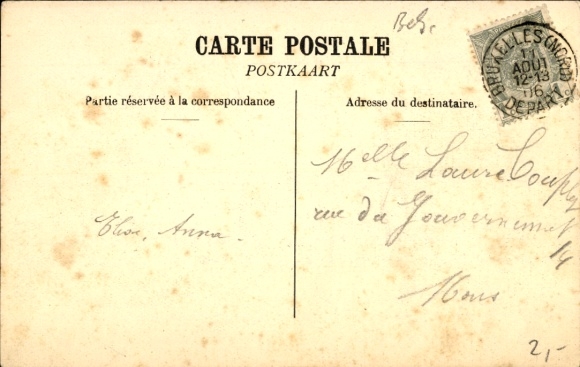 CARTE POSTALE
POSTKAART
Partie réservée à la correspondance
Adresse du destinataire.
BRUXELLES (NORD)
11
AOUT
12-13
06
DEPART
Melle Laure
rue du Gouvernement
14
Mons
Elise, Anna.
2,-